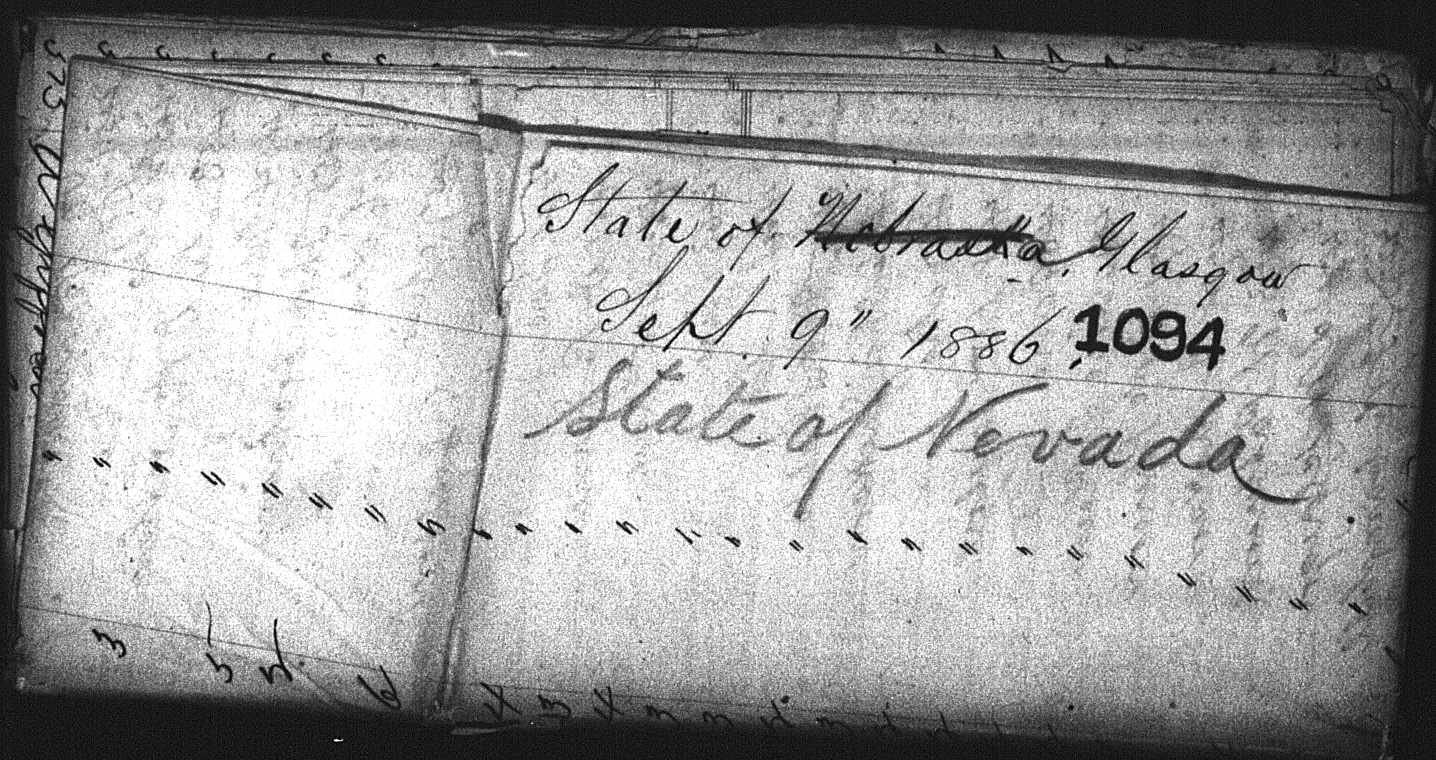 State of ~~Nebraska~~, Glasgow
Sept. 9" 1886, 1094
State of Nevada
" " " " " " " " " " " " " " " " " " " " " " " " "
3 3 6 4 3 4 3 3
575